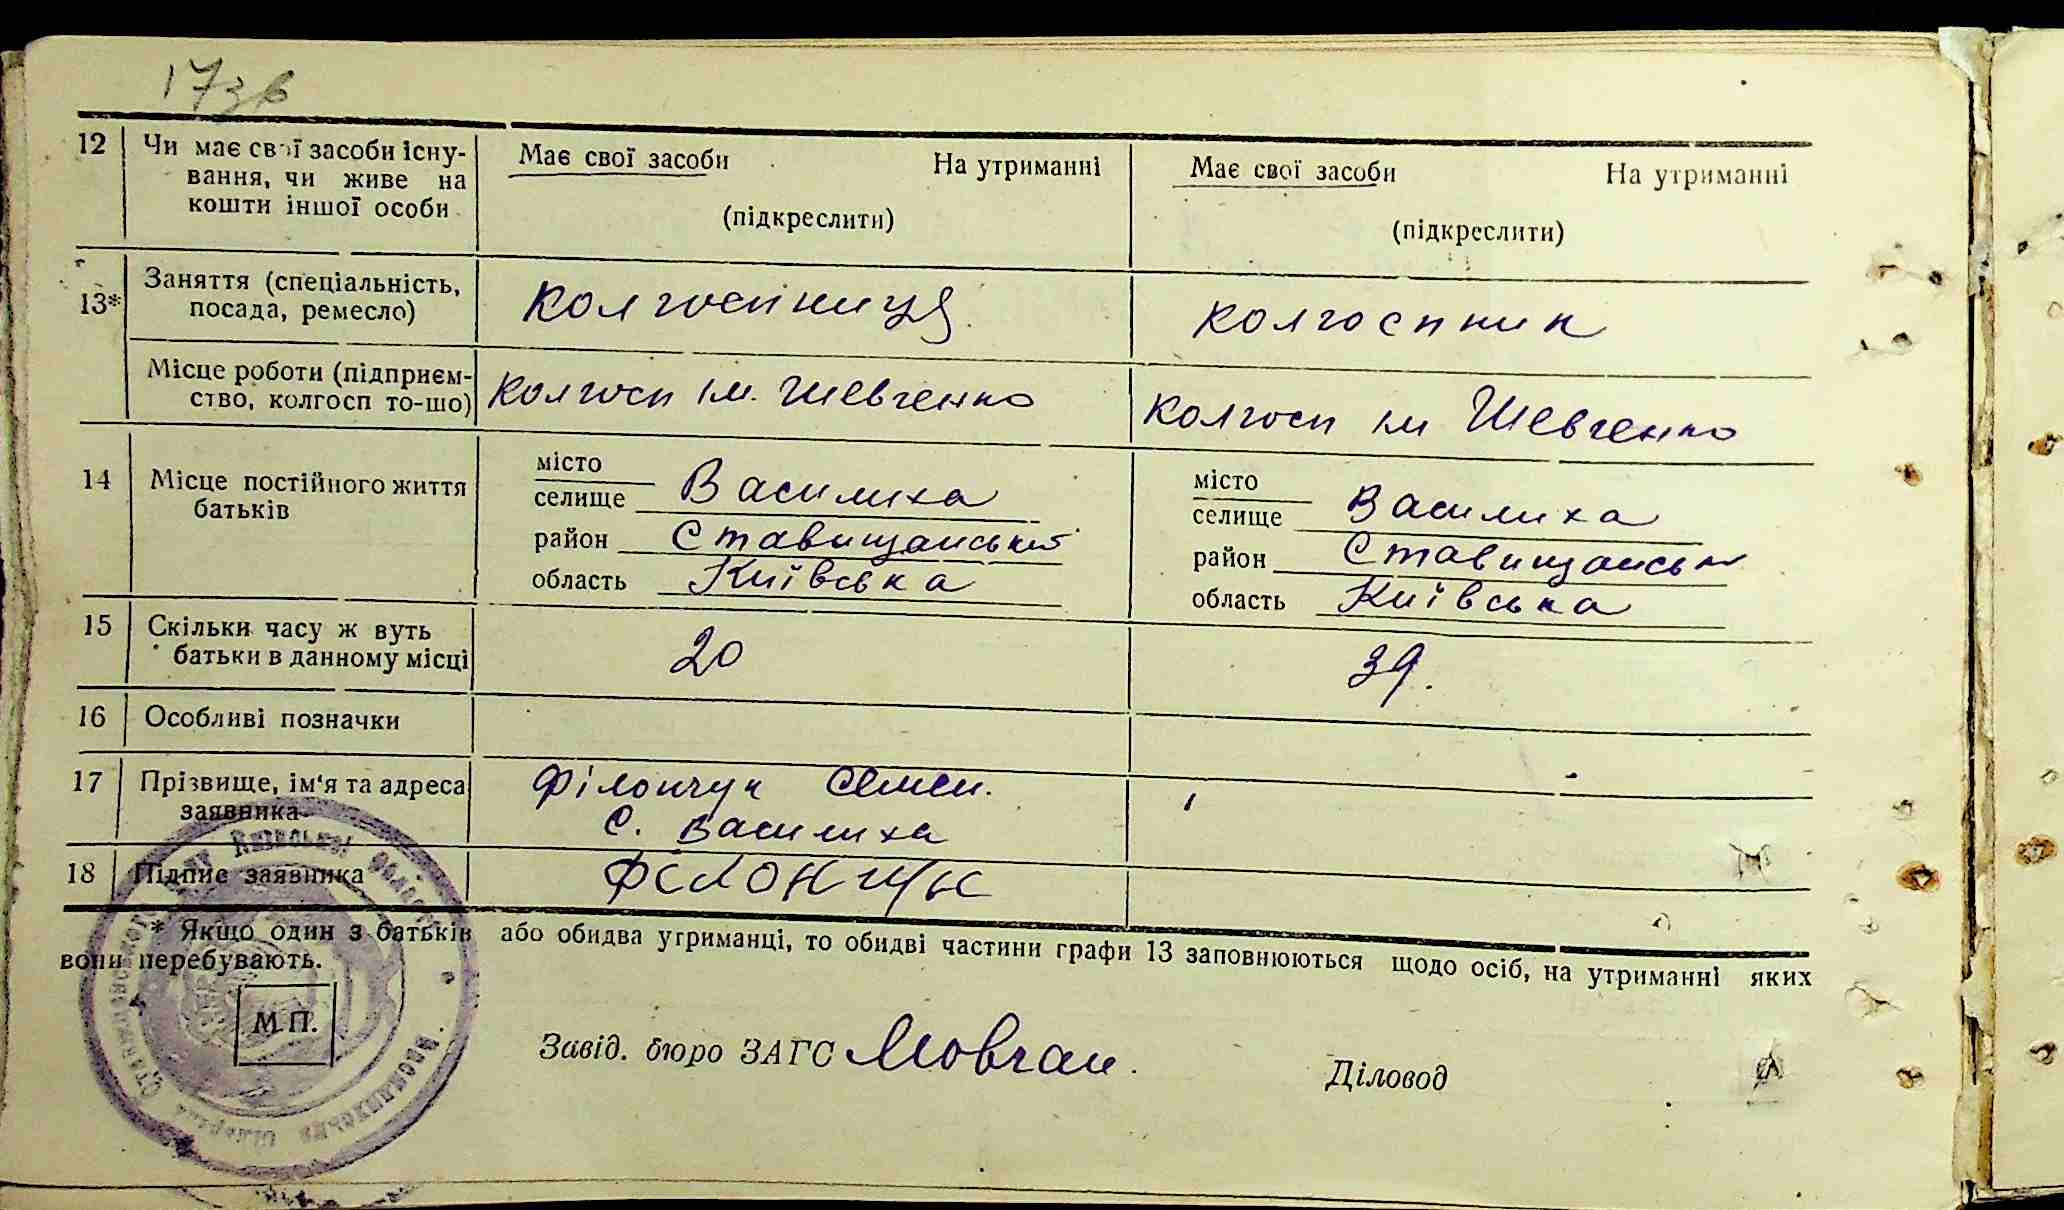 173в
12 Чи має свої засоби існу- Має свої засоби На утриманні Має свої засоби На утриманні
вання, чи живе на
кошти іншої особи (підкреслити) (підкреслити)
13* Заняття (спеціальність, колгоспниця колгоспник
посада, ремесло)
Місце роботи (підприєм- колгосп ім. Шевченко колгосп ім Шевченко
ство, колгосп то-шо)
14 Місце постійного життя місто місто
батьків селище Василиха селище Василиха
район Ставищанський район Ставищанськ
область Київська область Київська
15 Скільки часу ж вуть 20 39.
батьки в данному місці
16 Особливі позначки
17 Прізвище, ім'я та адреса Філончук Семен.
заявника с. Василиха
18 Підпис заявника
* Якщо один з батьків або обидва утриманці, то обидві частини графи 13 заповнюються щодо осіб, на утриманні яких
вони перебувають.
М П.
Завід. бюро ЗАГС Мовчан. Діловод
Київської області
Василиська сільрада